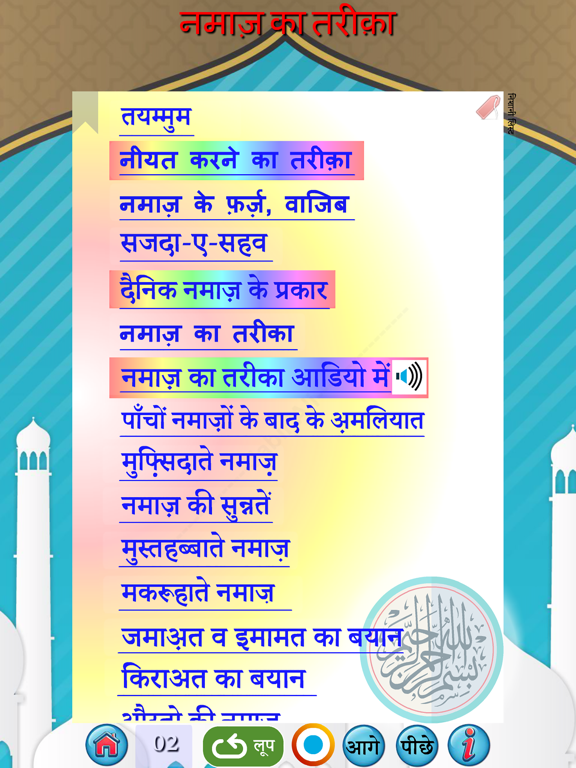 नमाज़ का तरीक़ा
निशानी लिस्ट
तयम्मुम
नीयत करने का तरीक़ा
नमाज़ के फ़र्ज़, वाजिब
सजदा-ए-सहव
दैनिक नमाज़ के प्रकार
नमाज़ का तरीका
नमाज़ का तरीका आडियो में
पाँचों नमाज़ों के बाद के अ़मलियात
मुफ़्सिदाते नमाज़
नमाज़ की सुन्नतें
मुस्तहब्बाते नमाज़
मकरूहाते नमाज़
जमाअ़त व इमामत का बयान
किराअत का बयान
औरतो की नमाज़
بسم الله الرحمن الرحيم
02
लूप
आगे
पीछे
i